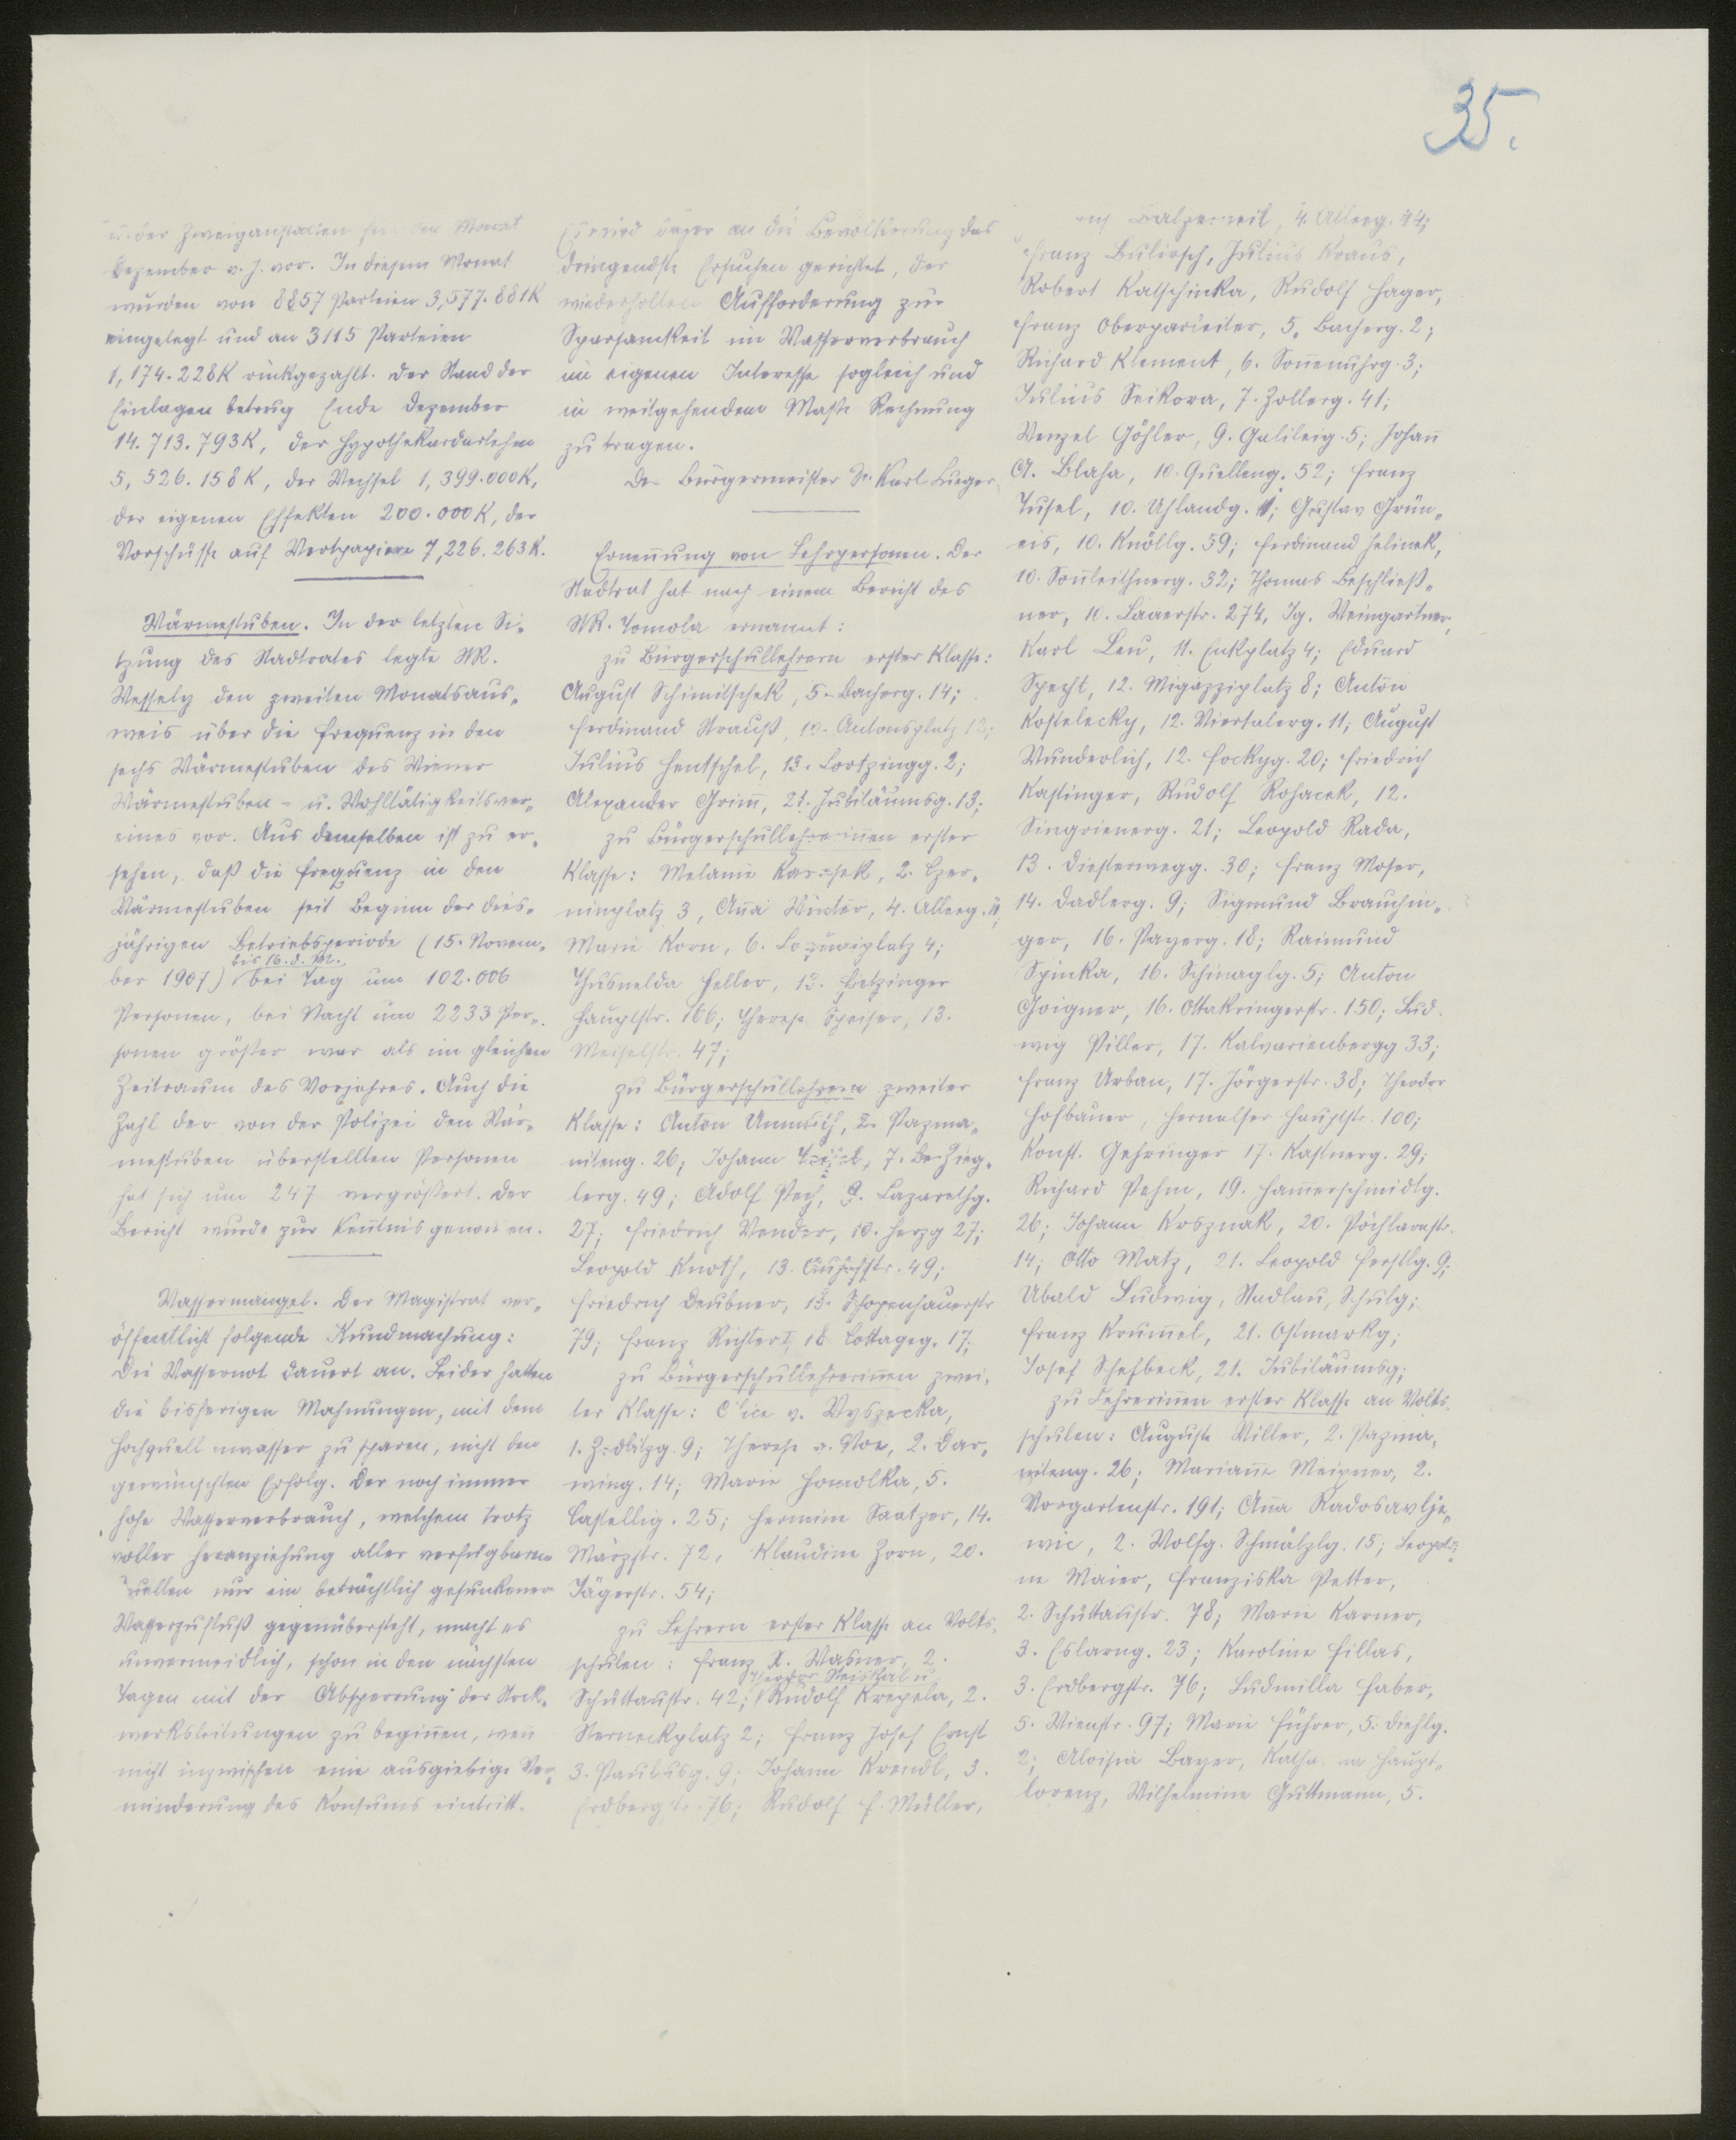 35.
u. der Zweiganstalten für den Monat
Dezember v. J. vor. In diesem Monat
wurden von 8857 Parteien 3,577.881K
eingelegt und an 3115 Parteien
1,174.228K rückgezahlt. Der Stand der
Einlagen betrug Ende Dezember
14.713.793K, der Hypothekardarlehen
5,526.158K, der Wechsel 1,399.000K,
der eigenen Effekten 200.000K, der
Vorschüsse auf Wertpapiere 7,226.263K.
Wärmestuben. In der letzten Si-
tzung des Stadtrates legte StR.
Wessely den zweiten Monatsaus-
weis über die Frequenz in den
sechs Wärmestuben des Wiener
Wärmestuben- u. Wohltätigkeitsver-
eines vor. Aus demselben ist zu er-
sehen, daß die Frequenz in den
Wärmestuben seit Beginn der dies-
jährigen Betriebsperiode (15. Novem-
bis 16. d. M.
ber 1907) bei Tag um 102.006
Personen, bei Nacht um 2233 Per-
sonen größer war als im gleichen
Zeitraum des Vorjahres. Auch die
Zahl der von der Polizei den Wär-
mestuben überstellten Personen
hat sich um 247 vergrößert. Der
Bericht wurde zur Kenntnis genommen.
Wassermangel. Der Magistrat ver-
öffentlicht folgende Kundmachung:
Die Wassernot dauert an. Leider hatten
die bisherigen Mahnungen, mit dem
Hochquellenwasser zu sparen, nicht den
gewünschten Erfolg. Der noch immer
hohe Wasserverbrauch, welchem trotz
voller Heranziehung aller verfügbaren
Quellen nur ein beträchtlich gesunkener
Wasserzufluß gegenübersteht, macht es
unvermeidlich, schon in den nächsten
Tagen mit der Absperrung der Stock-
werksleitungen zu beginnen, wenn
nicht inzwischen eine ausgiebige Ver-
minderung des Konsums eintritt.
Es wird daher an die Bevölkerung das
dringendste Ersuchen gerichtet, der
wiederholten Aufforderung zur
Sparsamkeit im Wasserverbrauch
im eigenen Interesse sogleich und
in weitgehendem Maße Rechnung
zu tragen.
Der Bürgermeister Dr. Karl Lueger.
Ernennung von Lehrpersonen. Der
Stadtrat hat nach einem Bericht des
StR. Tomola ernannt:
zu Bürgerschullehrern erster Klasse:
August Schimitschek, 5. Bacherg. 14;
Ferdinand Strauß, 10. Antonsplatz 12;
Julius Hentschel, 13. Lortzingg. 2;
Alexander Grimm, 21. Jubiläumsg. 13;
zu Bürgerschullehrerinnen erster
Klasse: Melanie 2. Czer-
ninplatz 3, Anna Winter, 4. Alleeg.
Marie Korn, 6. Loquaiplatz 4;
Thusnelda Heller, 13.
Hauptstr. 166; Therese Speiser, 13.
Meiselstr. 47;
zu Bürgerschullehrern zweiter
Klasse: Anton 2. Pazma-
niteng. 26; Johann 7. Zieg-
lerg. 49; Adolf Pech, 9. Lazarethg.
27; Friedrich 10. Herzg 27;
Leopold Knoth, 13. Auhofstr. 49;
Friedrich Deubner, 18. Schopenhauerstr
79; Franz Richter I, 18 Cottageg. 17;
zu Bürgerschullehrerinnen zwei-
ter Klasse: v. Wyszecka,
1. Zedlitzg. 9; Therese 2. Dar-
wing. 14; Marie Homolka, 5.
Castellig. 25; Hermine Saatzer, 14.
Märzstr. 72, Klaudine Zorn, 20.
Jägerstr. 54;
zu Lehrern erster Klasse an Volks-
schulen: Franz X. Wasner, 2.
Theodor Neiskal u.
Schüttaustr. 42; Rudolf Krepela, 2.
Sterneckplatz 2; Franz Josef Ernst
3. Paulusg. 9; Johann Krendl, 3.
Erdbergstr. 76; Rudolf F. Müller,
4. Alleeg. 44;
Franz Bulirsch, Julius Kraus,
Robert Katschinka, Rudolf Hager,
Franz Oberparleiter, 5. Bacherg. 2;
Richard Klement, 6. Sonnenuhrg. 3;
Julius Seikora, 7. Zollerg. 41;
Wenzel Göhler, 9. Galileig. 5; Johann
A. Blaha, 10. Quelleng. 52; Franz
Tusel, 10. Uhlandg. 1; Gustav Grün-
eis, 10. Knöllg. 59; Ferdinand Jelinek,
10. Sonnleithnerg. 32; Thomas Beschließ-
ner, 10. Laaerstr. 274, Ig. Weingartner,
Karl Leu, 11. Enkplatz 4; Eduard
Specht, 12. Migazziplatz 8; Anton
Kostelecky, 12. Viertalerg. 11; August
Wunderlich, 12. Fockyg. 20; Friedrich
Kastinger, Rudolf Rohacek, 12.
Singrienerg. 21; Leopold Rada,
13. Diesterwegg. 30; Franz Moser,
14. Dadlerg. 9; Sigmund Brauchin-
ger, 16. Payerg. 18; Raimund
Spinka, 16. Schinaglg. 5; Anton
Goigner, 16. Ottakringerstr. 150; Lud-
wig Piller, 17. Kalvarienbergg 33;
Franz Urban, 17. Jörgerstr. 38; Theodor
Hofbauer, Hernalser Hauptstr. 100;
Konst. Gehringer 17. Kastnerg. 29;
Richard Pehm, 19. Hammerschmidtg.
26; Johann Kosznak, 20. Pöchlarnstr.
14; Otto Matz, 21. Leopold Ferstlg. 9;
Ubald Ludwig, Stadlau, Schulg;
Franz Krummel, 21. Ostmarkg;
Josef Schefbeck, 21. Jubiläumsg;
zu Lehrerinnen erster Klasse an Volks-
schulen: Auguste Miller, 2. Pazma-
niteng. 26; Marianne Meixner, 2.
Vorgartenstr. 191; Anna Radosavlje-
wic, 2. Wolfg. Schmälzlg. 15; Leopoldi-
ne Maier, Franziska Petter,
2. Schüttaustr. 78; Marie Karner,
3. Eslarng. 23; Karoline Fillas,
3. Erdbergstr. 76; Ludmilla Faber,
5. Wienstr. 97; Marie Führer, 5. Diehlg.
2; Aloisia Bayer, Katharina Haupt-
lorenz, Wilhelmine Guttmann, 5.